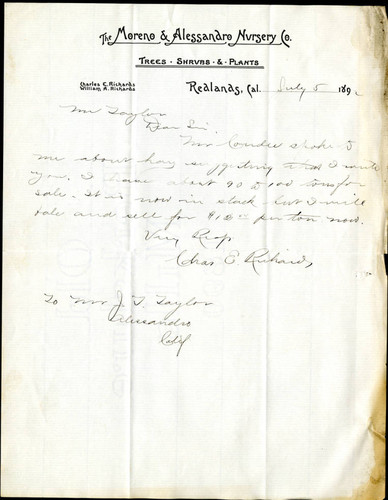 The Moreno & Alessandro Nursery Co.
Trees · Shrubs · & · Plants
Charles E. Richards
William A. Richards
Redlands, Cal. July 5 189
Mr Taylor
Dear Sir.
Mr Condee spoke to
me about hay suggesting that I write
you. I have about 90 to 100 tons for
sale. It is now in stack but I will
bale and sell for per ton now.
Very Resp
Chas E Richards
To Mr J. T. Taylor
Alessandro
Calif